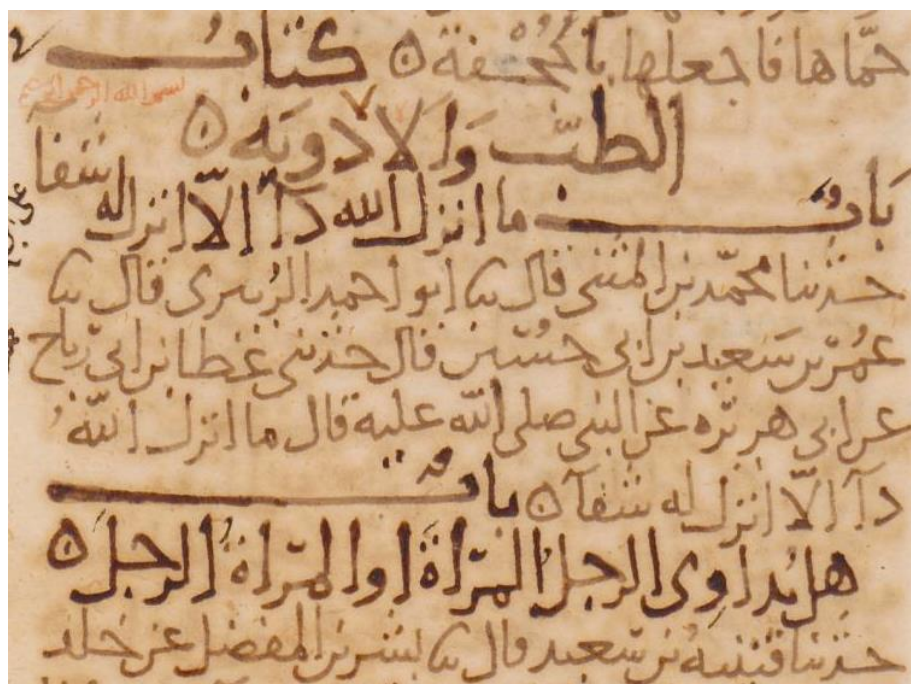 حمّاها فاجعلها بالجُحْفة ه كتابُ
بسم الله الرحمن الرحيم
الطبّ وَالادويَه ه
بَابُ ما انزل الله دآ الّا انزل له شفا
حدثنا محمّد بن المثنى قال نا ابو احمد الزُبيرى قال نا
عُمَرُ بن سَعيد بن ابى حُسَين قال حدثنى عَطا بن ابى رَباح
عن ابى هريَره عن النبى صلى الله عليه قال ما انزل اللهُ
دآ الّا انزل له شفآ ه بابُ
هل يُداوِى الرجلُ المرَّاةَ او المرَّاةُ الرجلَ ه
حدثنا قتيبةُ بن سَعيد قال نا بشر بن المفضل عن خلد